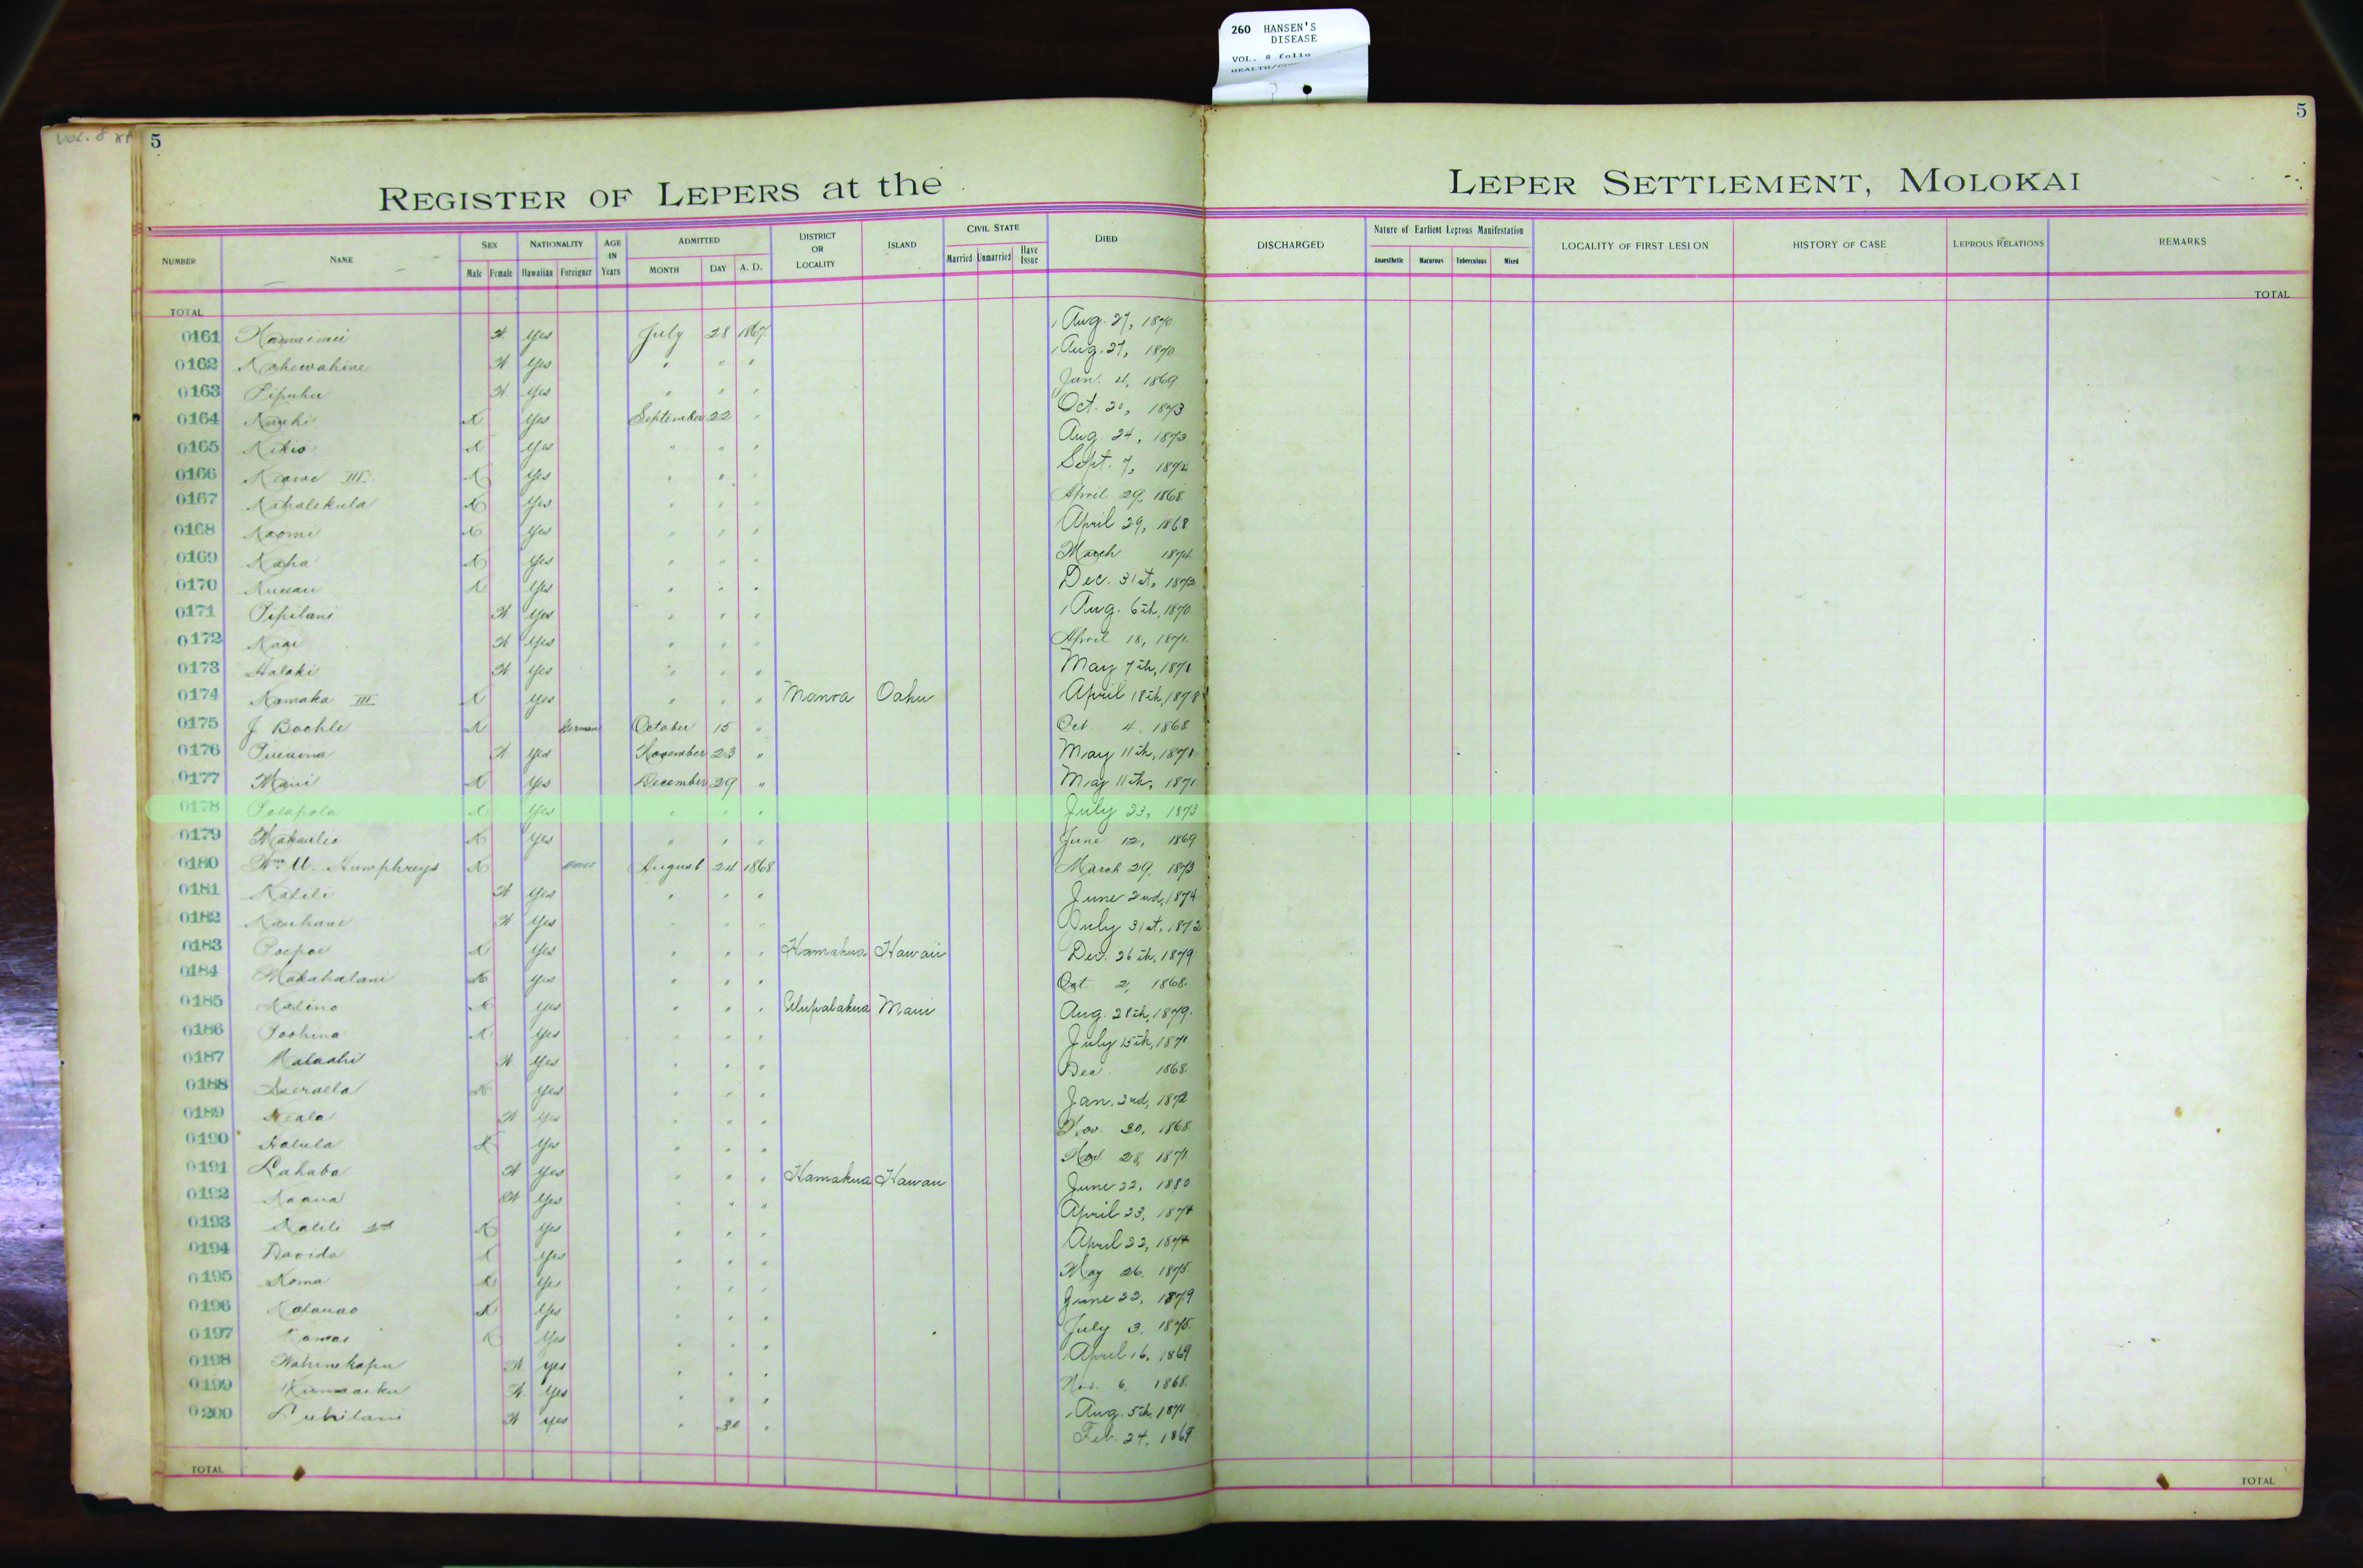 260 HANSEN'S
DISEASE
VOL. 8 folio
VOL. 8
5
5
REGISTER OF LEPERS at the LEPER SETTLEMENT, MOLOKAI
NUMBER NAME SEX Male Female NATIONALITY Hawaiian Foreigner AGE IN Years ADMITTED MONTH DAY A. D. DISTRICT OR LOCALITY ISLAND CIVIL STATE Married Unmarried Have Issue DIED DISCHARGED Nature of Earliest Leprous Manifestation Anaesthetic Macurous Tuberculous Mixed LOCALITY OF FIRST LESION HISTORY OF CASE LEPROUS RELATIONS REMARKS
TOTAL TOTAL
0161 Yes July 28 1867 Aug. 27, 1870
0162 Kahewahine Yes " " " Aug. 27, 1870
0163 Pipuhu Yes " " " Jan. 4, 1869
0164 Yes September 22 " Oct. 1873
0165 Kikio Yes " " " Aug. 24, 1873
0166 Keawe III Yes " " " Sept. 7, 1874
0167 Kahalekula Yes " " " April 29, 1868
0168 Naomi Yes " " " April 29, 1868
0169 Kaha Yes " " " March 1874
0170 Yes " " " Dec. 31st, 1873
0171 Pipilani Yes " " " Aug. 6th, 1870
0172 Kaai Yes " " " April 18, 1871
0173 Halaki Yes " " " May 7th, 1871
0174 Kamaka III Yes " " " Manoa Oahu April 18th, 1878
0175 J Boehle German October 15 " Oct 4, 1868
0176 Yes November 23 " May 11th, 1871
0177 Maui Yes December 29 " May 11th, 1871
0178 Polapola Yes " " " July 23, 1873
0179 Makaulia Yes " " " June 12, 1869
0180 Wm. U. Humphreys August 24 1868 March 29, 1873
0181 Kalili Yes " " " June 2nd, 1874
0182 Kauhane Yes " " " July 31st, 1872
0183 Poepoe Yes " " " Hamakua Hawaii Dec. 26th, 1879
0184 Makahalani Yes " " " Oct 2, 1868
0185 Kalino Yes " " " Ulupalakua Maui Aug. 28th, 1879
0186 Poohina Yes " " " July 15th, 1871
0187 Malaahi Yes " " " Dec 1868
0188 Yes " " " Jan. 2nd, 1872
0189 Keala Yes " " " Nov. 30, 1868
0190 Halula Yes " " " Nov. 28, 1871
0191 Lahaba Yes " " " Hamakua Hawaii June 22, 1880
0192 Kaaua Yes " " " April 23, 1874
0193 Kalili 2nd Yes " " " April 22, 1874
0194 Davida Yes " " " May 26, 1875
0195 Koma Yes " " " June 22, 1879
0196 Kalauao Yes " " " July 3, 1875
0197 Kamai Yes " " " April 16, 1869
0198 Wahinekapu Yes " " " Nov. 6, 1868
0199 Yes " " " Aug. 5th, 1871
0200 Luhilani Yes " 30 " Feb. 24, 1869
TOTAL TOTAL